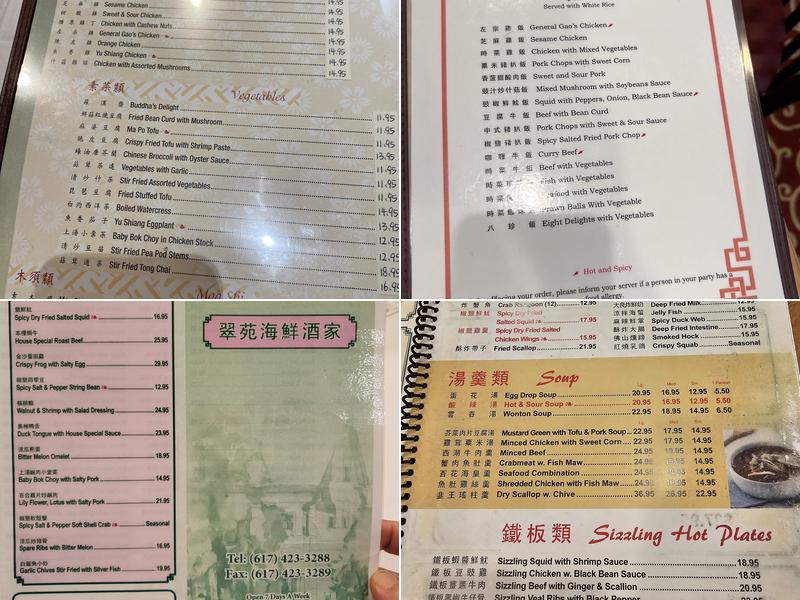 芝麻雞 Sesame Chicken 14.95
Sweet & Sour Chicken 14.95
Chicken with Cashew Nuts 14.95
左宗雞 General Gao's Chicken 14.95
Orange Chicken 14.95
魚香雞 Yu Shiang Chicken 14.95
Chicken with Assorted Mushrooms 14.95
素菜類 Vegetables
羅漢齋 Buddha's Delight 11.95
鮮菇紅燒豆腐 Fried Bean Curd with Mushroom 11.95
麻婆豆腐 Ma Po Tofu 11.95
脆皮豆腐 Crispy Fried Tofu with Shrimp Paste 11.95
蠔油唐芥蘭 Chinese Broccoli with Oyster Sauce 13.95
蒜茸菜遠 Vegetables with Garlic 11.95
清炒什菜 Stir Fried Assorted Vegetables 11.95
琵琶豆腐 Fried Stuffed Tofu 11.95
白灼西洋菜 Boiled Watercress 14.95
魚香茄子 Yu Shiang Eggplant 13.95
上湯小棠菜 Baby Bok Choy in Chicken Stock 12.95
清炒豆苗 Stir Fried Pea Pod Stems 12.95
蒜茸通菜 Stir Fried Tong Chai 18.95
木須類 Moo Shi 16.95
Served with White Rice
左宗雞飯 General Gao's Chicken
芝麻雞飯 Sesame Chicken
時菜雞飯 Chicken with Mixed Vegetables
粟米豬扒飯 Pork Chops with Sweet Corn
香菠甜酸肉飯 Sweet and Sour Pork
豉汁炒什菇飯 Mixed Mushroom with Soybeans Sauce
豉椒鮮魷飯 Squid with Peppers, Onion, Black Bean Sauce
豆腐牛飯 Beef with Bean Curd
中式豬扒飯 Pork Chops with Sweet & Sour Sauce
椒鹽豬扒飯 Spicy Salted Fried Pork Chop
咖喱牛飯 Curry Beef
時菜牛飯 Beef with Vegetables
時菜 Fish with Vegetables
時菜 Seafood with Vegetables
時菜 Prawn Balls With Vegetable
八珍飯 Eight Delights with Vegetables
Hot and Spicy
Placing your order, please inform your server if a person in your party has a
food allergy.
鹽鮮魷
Spicy Dry Fried Salted Squid 16.95
本樓燒牛
House Special Roast Beef 25.95
金沙蛋田雞
Crispy Frog with Salty Egg 29.95
椒鹽四季豆
Spicy Salt & Pepper String Bean 12.95
Walnut & Shrimp with Salad Dressing 24.95
Duck Tongue with House Special Sauce 23.95
涼瓜煎蛋
Bitter Melon Omelet 18.95
上湯鹹肉小棠菜
Baby Bok Choy with Salty Pork 14.95
百合藕片炒鹹肉
Lily Flower, Lotus with Salty Pork 21.95
椒鹽軟殼蟹
Spicy Salt & Pepper Soft Shell Crab Seasonal
涼瓜炒排骨
Spare Ribs with Bitter Melon 16.95
白飯魚小炒
Garlic Chives Stir Fried with Silver Fish 19.95
翠苑海鮮酒家
Tel: (617) 423-3288
Fax: (617) 423-3289
Open 7 Days A Week
炸蟹角 Crab Rangoon (12) 12.95
椒鹽鮮魷 Spicy Dry Fried
Salted Squid 17.95
椒鹽雞翼 Spicy Dry Fried Salted
Chicken Wings 15.95
酥炸帶子 Fried Scallop 21.95
大良炸鮮奶 Deep Fried Milk 12.95
涼拌海蜇 Jelly Fish 15.95
麻辣鮮掌 Spicy Duck Web 15.95
酥炸大腸 Deep Fried Intestine 17.95
佛山燻蹄 Smoked Hock 15.95
紅燒乳鴿 Crispy Squab Seasonal
湯羹類 Soup
Lg. Med Sm. 1 Person
蛋花湯 Egg Drop Soup 20.95 16.95 12.95 5.50
酸辣湯 Hot & Sour Soup 20.95 16.95 12.95 5.50
雲吞湯 Wonton Soup 22.95 18.95 14.95 6.50
Lg. Med Sm.
芥菜肉片豆腐湯 Mustard Green with Tofu & Pork Soup 22.95 17.95 14.95
雞茸粟米湯 Minced Chicken with Sweet Corn 22.95 17.95 14.95
西湖牛肉羹 Minced Beef 24.95 14.95
蟹肉魚肚羹 Crabmeat w. Fish Maw 24.95 14.95
百花海皇羹 Seafood Combination 24.95 14.95
魚肚雞絲羹 Shredded Chicken with Fish Maw 24.95 14.95
韭王瑤柱羹 Dry Scallop w. Chive 36.95 26.95 22.95
鐵板類 Sizzling Hot Plates
鐵板蝦醬鮮魷 Sizzling Squid with Shrimp Sauce 18.95
鐵板豆豉雞 Sizzling Chicken w. Black Bean Sauce 18.95
鐵板薑蔥牛肉 Sizzling Beef with Ginger & Scallion 20.95
Sizzling Veal Ribs with Black Pepper